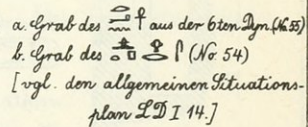 a. Grab des aus der 6ten Dyn. (No. 55)
b. Grab des (No. 54)
[vgl. den allgemeinen Situations-
plan LD I 14.]